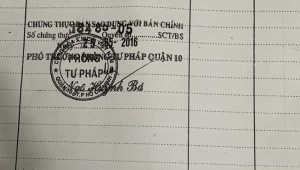 CHỨNG THỰC BẢN SAO ĐÚNG VỚI BẢN CHÍNH
Số chứng thực Quyển số SCT/BS
2016
PHÓ TRƯỞNG PHÒNG TƯ PHÁP QUẬN 10
PHÒNG
TƯ PHÁP
Ngô Huỳnh Bá